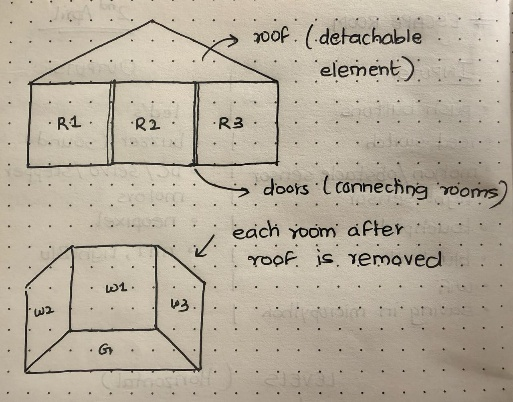 roof. (detachable
element)
R1 R2 R3
doors (connecting rooms)
each room after
roof is removed
W1
W2
W3
G